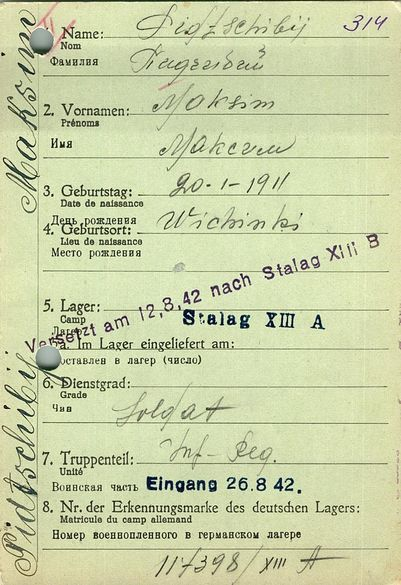 314
1. Name: Pidtschibij
Nom
Фамилия
2. Vornamen: Maksim
Prénoms
Имя Максим
3. Geburtstag: 20-1-1911
Date de naissance
День рождения
4. Geburtsort: Wichinki
Lieu de naissance
Место рождения
Versetzt am 12.8.42 nach Stalag XIII B
5. Lager: Stalag XIII A
Camp
a. Im Lager eingeliefert am:
оставлен в лагер (число)
6. Dienstgrad:
Grade
Чин Soldat
7. Truppenteil: Inf-Reg.
Unité
Воинская часть Eingang 26.8 42.
8. Nr. der Erkennungsmarke des deutschen Lagers:
Matricule du camp allemand
Номер военнопленного в германском лагере
117398/XIII A
Pidtschibij Maksim